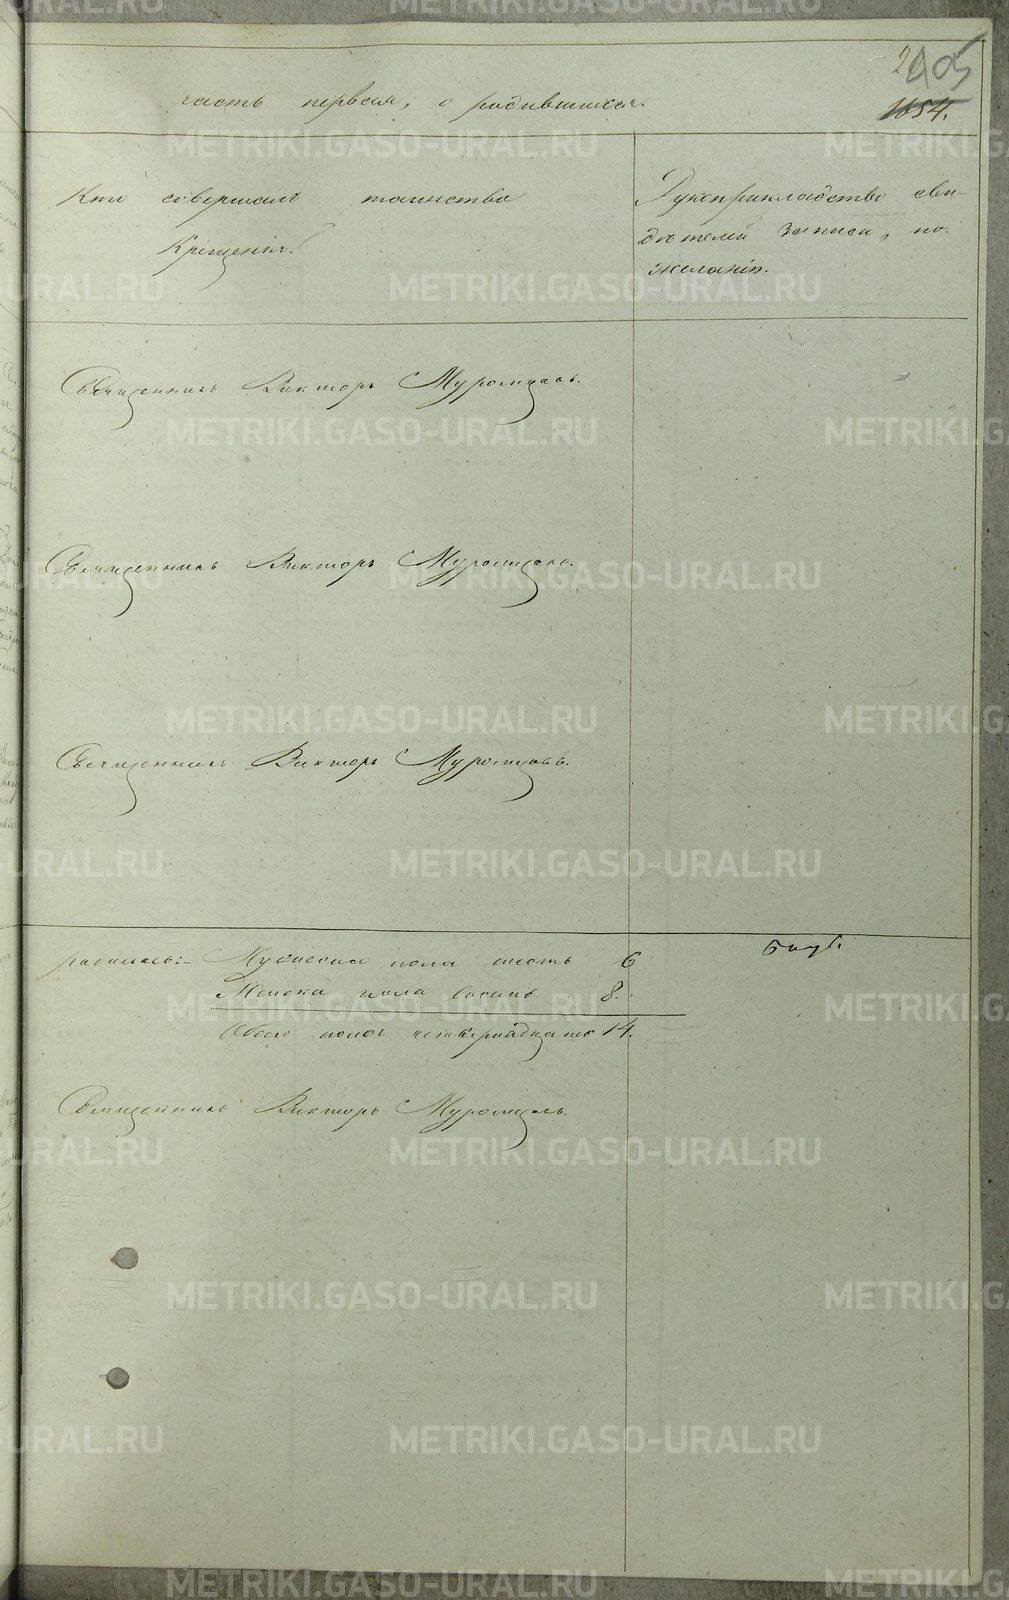 205
1654.
часть первая, о родившихся.
Кто совершалъ таинство
Крещенія.
Рукоприкладство сви-
дѣтелей записи, по
желанію.
Священникъ Викторъ Муромцовъ.
Священникъ Викторъ Муромцовъ.
Священникъ Викторъ Муромцовъ.
Мужеска пола шесть 6
Женска пола восемь 8.
Обоего пола четырнадцать 14.
Священникъ Викторъ Муромцовъ.
METRIKI.GASO-URAL.RU